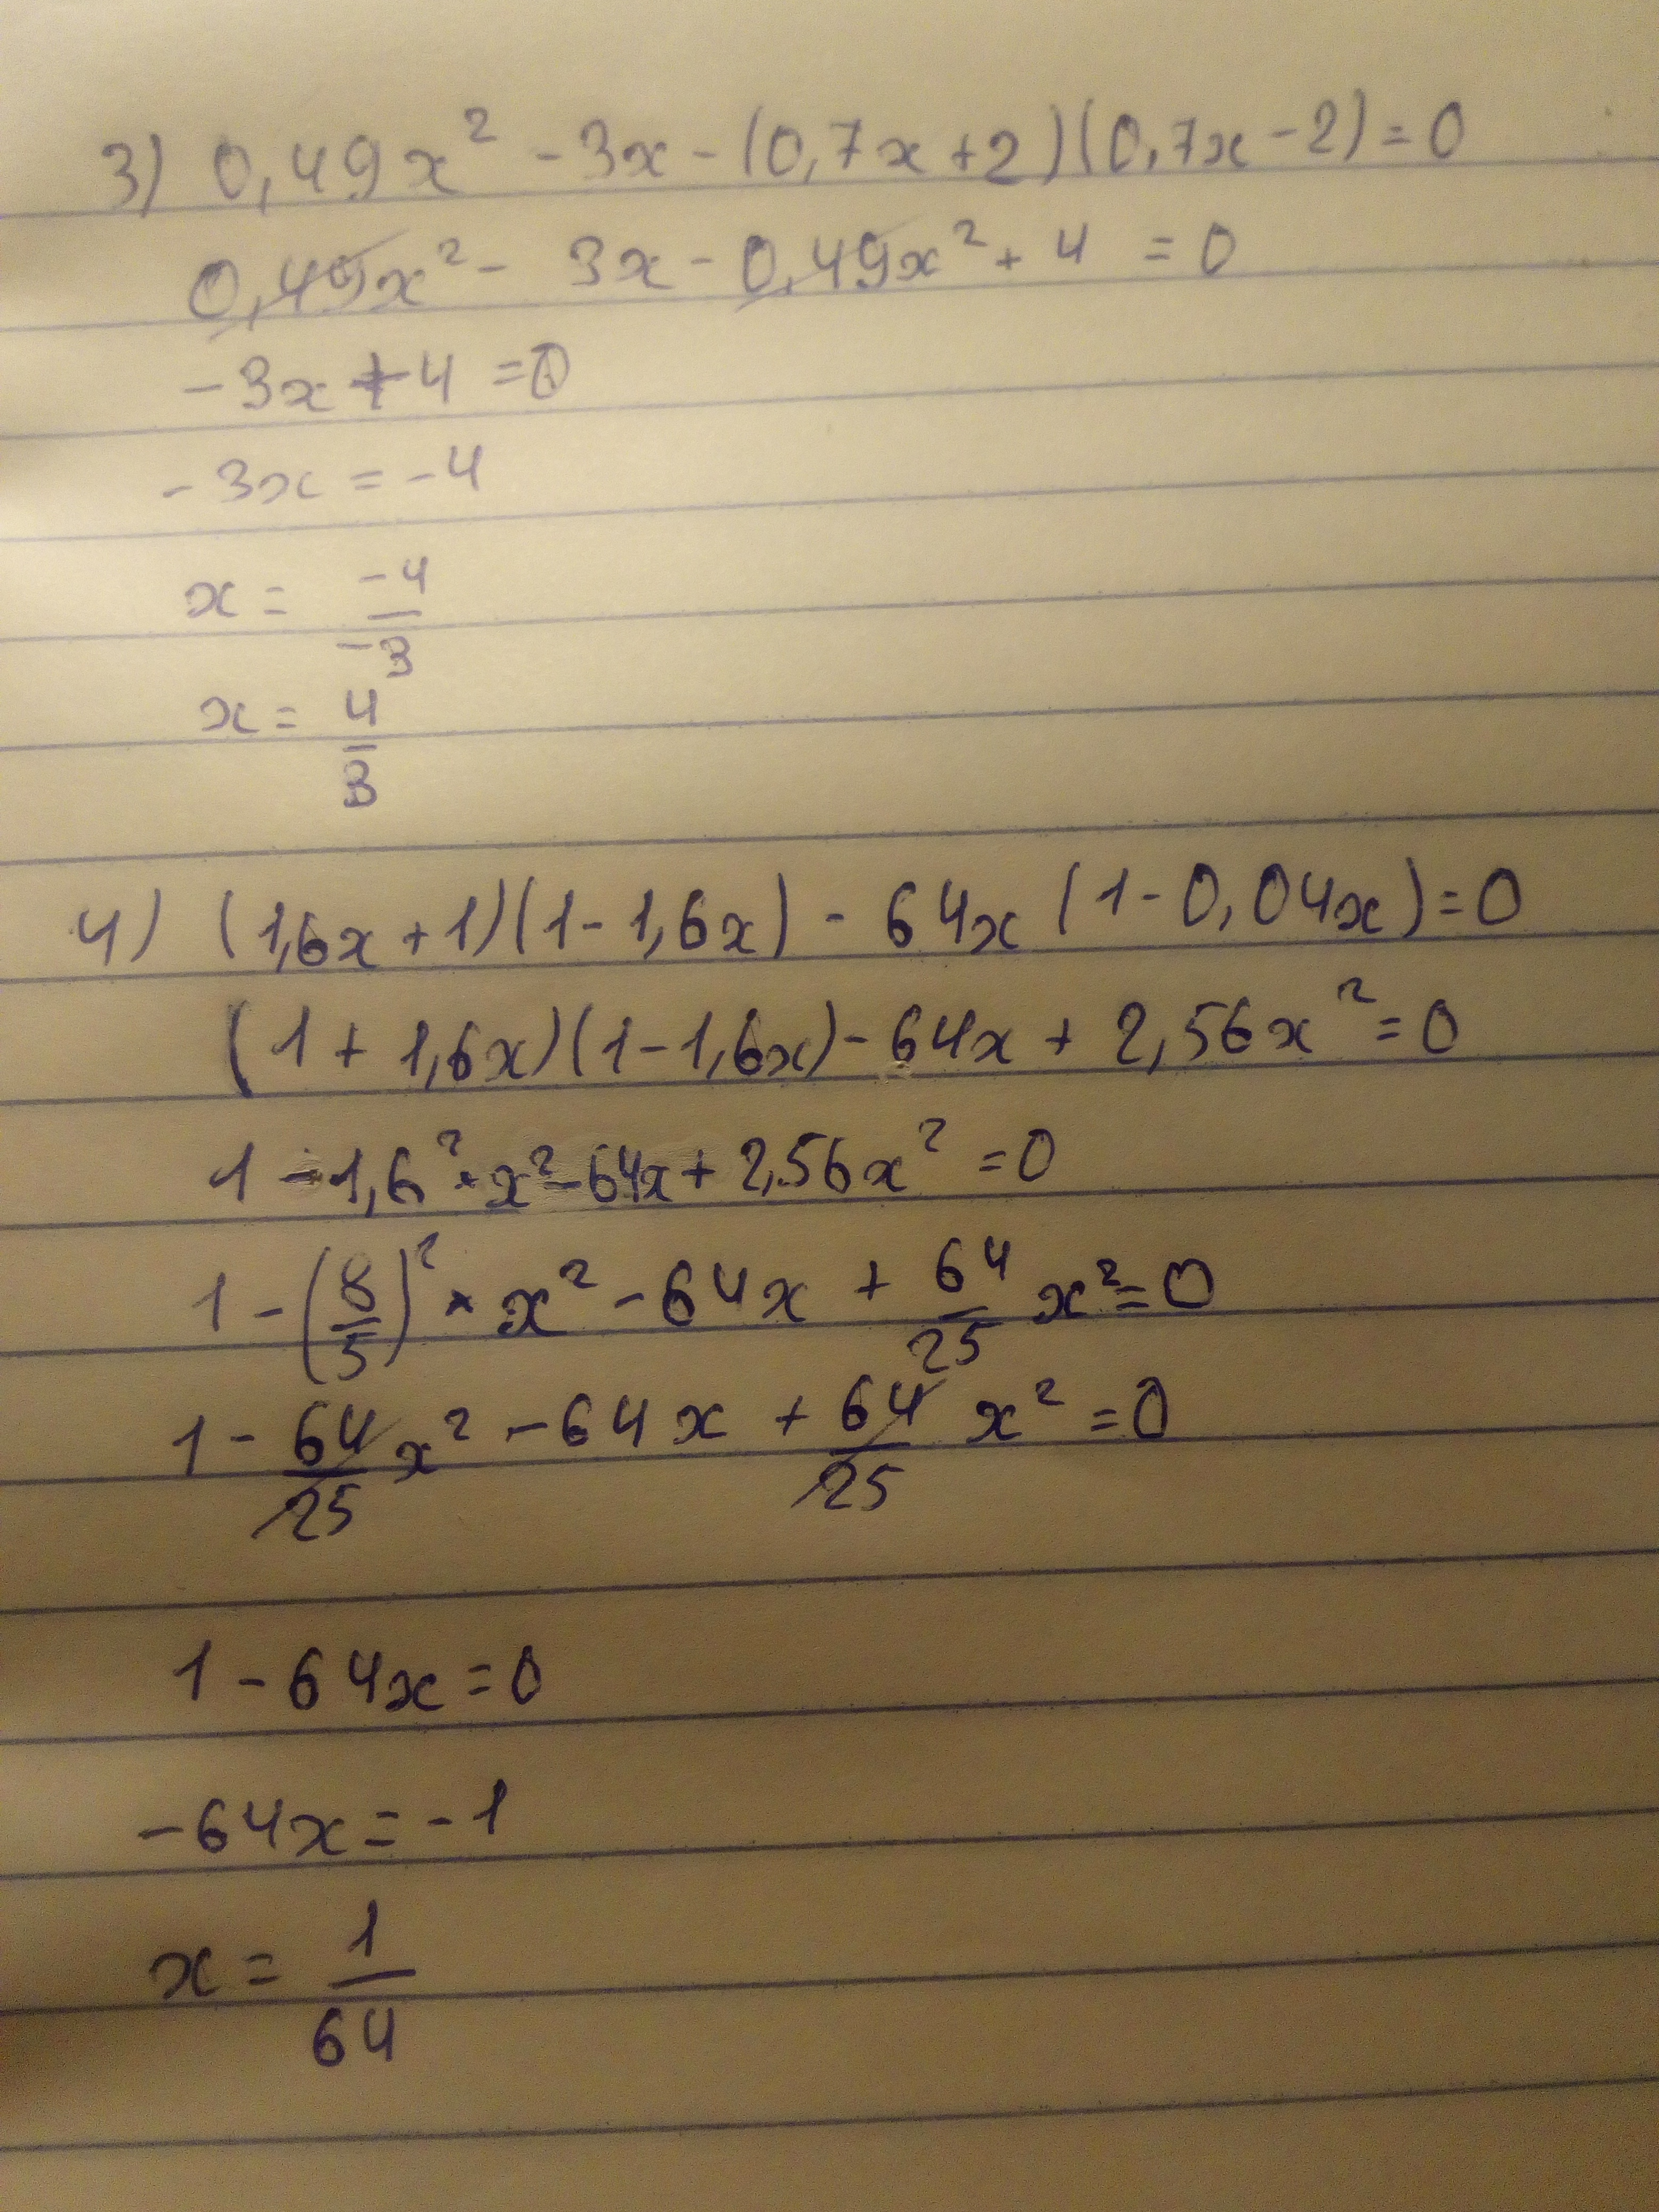 3) 0,49x² - 3x - (0,7x + 2)(0,7x - 2) = 0
0,49x² - 3x - 0,49x² + 4 = 0
-3x + 4 = 0
-3x = -4
x = -4/-3
x = 4/3
4) (1,6x + 1)(1 - 1,6x) - 64x (1 - 0,04x) = 0
(1 + 1,6x)(1 - 1,6x) - 64x + 2,56x² = 0
1 - 1,6² · x² - 64x + 2,56x² = 0
1 - (8/5)² · x² - 64x + 64/25 x² = 0
1 - 64/25 x² - 64x + 64/25 x² = 0
1 - 64x = 0
-64x = -1
x = 1/64